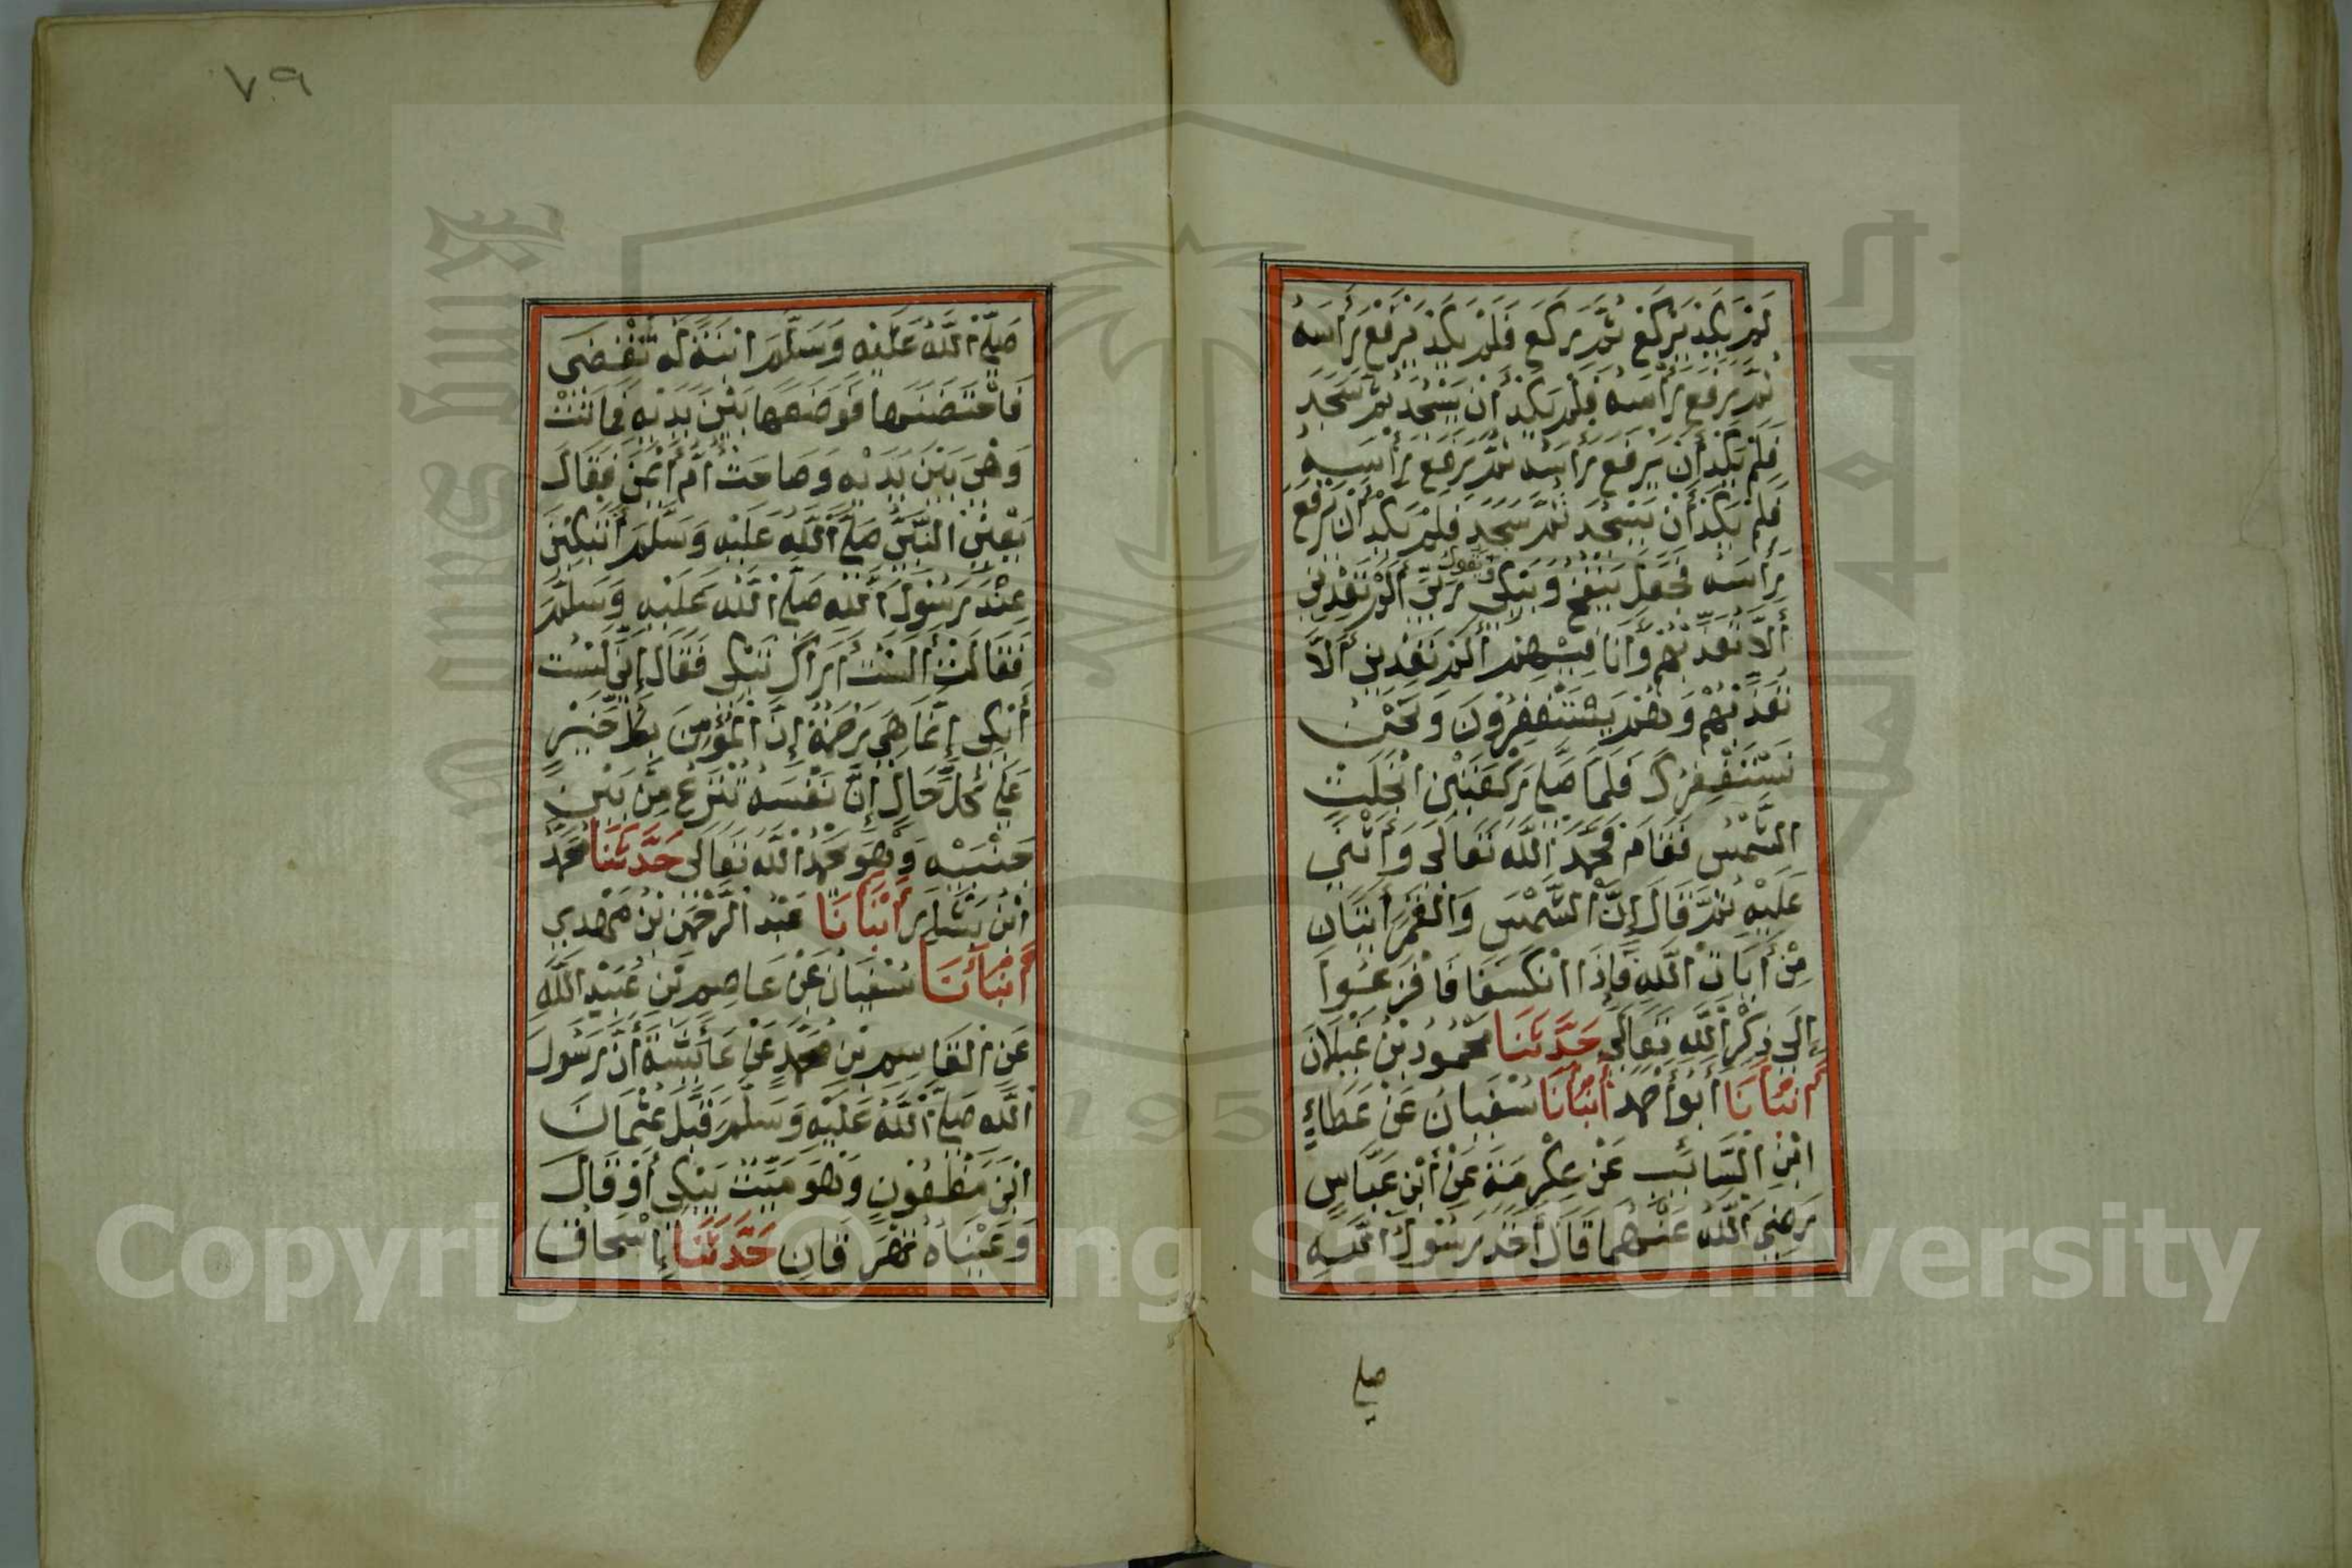 لَمْ يَكَدْ يَرْكَعُ ثُمَّ رَكَعَ فَلَمْ يَكَدْ يَرْفَعُ رَأْسَهُ
ثُمَّ رَفَعَ رَأْسَهُ فَلَمْ يَكَدْ أَنْ يَسْجُدَ ثُمَّ سَجَدَ
فَلَمْ يَكَدْ أَنْ يَرْفَعَ رَأْسَهُ ثُمَّ رَفَعَ رَأْسَهُ
فَلَمْ يَكَدْ أَنْ يَسْجُدَ ثُمَّ سَجَدَ فَلَمْ يَكَدْ أَنْ يَرْفَعَ
رَأْسَهُ فَجَعَلَ يَنْفُخُ وَيَبْكِي وَيَقُولُ رَبِّ أَلَمْ تَعِدْنِي
أَلَّا تُعَذِّبَهُمْ وَأَنَا فِيهِمْ أَلَمْ تَعِدْنِي أَلَّا
تُعَذِّبَهُمْ وَهُمْ يَسْتَغْفِرُونَ وَنَحْنُ
نَسْتَغْفِرُكَ فَلَمَّا صَلَّى رَكْعَتَيْنِ انْجَلَتِ
الشَّمْسُ فَقَامَ فَحَمِدَ اللَّهَ تَعَالَى وَأَثْنَى
عَلَيْهِ ثُمَّ قَالَ إِنَّ الشَّمْسَ وَالْقَمَرَ آيَتَانِ
مِنْ آيَاتِ اللَّهِ فَإِذَا انْكَسَفَا فَافْزَعُوا
إِلَى ذِكْرِ اللَّهِ تَعَالَى حَدَّثَنَا مَحْمُودُ بْنُ غَيْلَانَ
أَنْبَأَنَا أَبُو أَحْمَد أَنْبَأَنَا سُفْيَانُ عَنْ عَطَاءِ
ابْنِ السَّائِبِ عَنْ عِكْرِمَةَ عَنْ ابْنِ عَبَّاسٍ
رَضِيَ اللَّهُ عَنْهُمَا قَالَ أَخَذَ رَسُولُ اللَّهِ
صلى
٧٩
صَلَّى اللَّهُ عَلَيْهِ وَسَلَّمَ ابْنَةً لَهُ تَقْضِي
فَاحْتَضَنَهَا فَوَضَعَهَا بَيْنَ يَدَيْهِ فَمَاتَتْ
وَهِيَ بَيْنَ يَدَيْهِ وَصَاحَتْ أُمُّ أَيْمَنَ فَقَالَ
يَعْنِي النَّبِيَّ صَلَّى اللَّهُ عَلَيْهِ وَسَلَّمَ أَتَبْكِينَ
عِنْدَ رَسُولِ اللَّهِ صَلَّى اللَّهُ عَلَيْهِ وَسَلَّمَ
فَقَالَتْ أَلَسْتُ أَرَاكَ تَبْكِي فَقَالَ إِنِّي لَسْتُ
أَبْكِي إِنَّمَا هِيَ رَحْمَةٌ إِنَّ الْمُؤْمِنَ بِكُلِّ خَيْرٍ
عَلَى كُلِّ حَالٍ إِنَّ نَفْسَهُ تُنْزَعُ مِنْ بَيْنِ
جَنْبَيْهِ وَهُوَ يَحْمَدُ اللَّهَ تَعَالَى حَدَّثَنَا مُحَمَّدُ
ابْنُ بَشَّارٍ أَنْبَأَنَا عَبْدُ الرَّحْمَنِ بْنُ مَهْدِي
أَنْبَأَنَا سُفْيَانُ عَنْ عَاصِمِ بْنِ عُبَيْدِ اللَّهِ
عَنِ الْقَاسِمِ بْنِ مُحَمَّدٍ عَنْ عَائِشَةَ أَنَّ رَسُولَ
اللَّهِ صَلَّى اللَّهُ عَلَيْهِ وَسَلَّمَ قَبَّلَ عُثْمَانَ
ابْنَ مَظْعُونٍ وَهُوَ مَيِّتٌ يَبْكِي أَوْ قَالَ
وَعَيْنَاهُ تَهْرَقَانِ حَدَّثَنَا إِسْحَاقُ
Copyright © King Saud University
1957